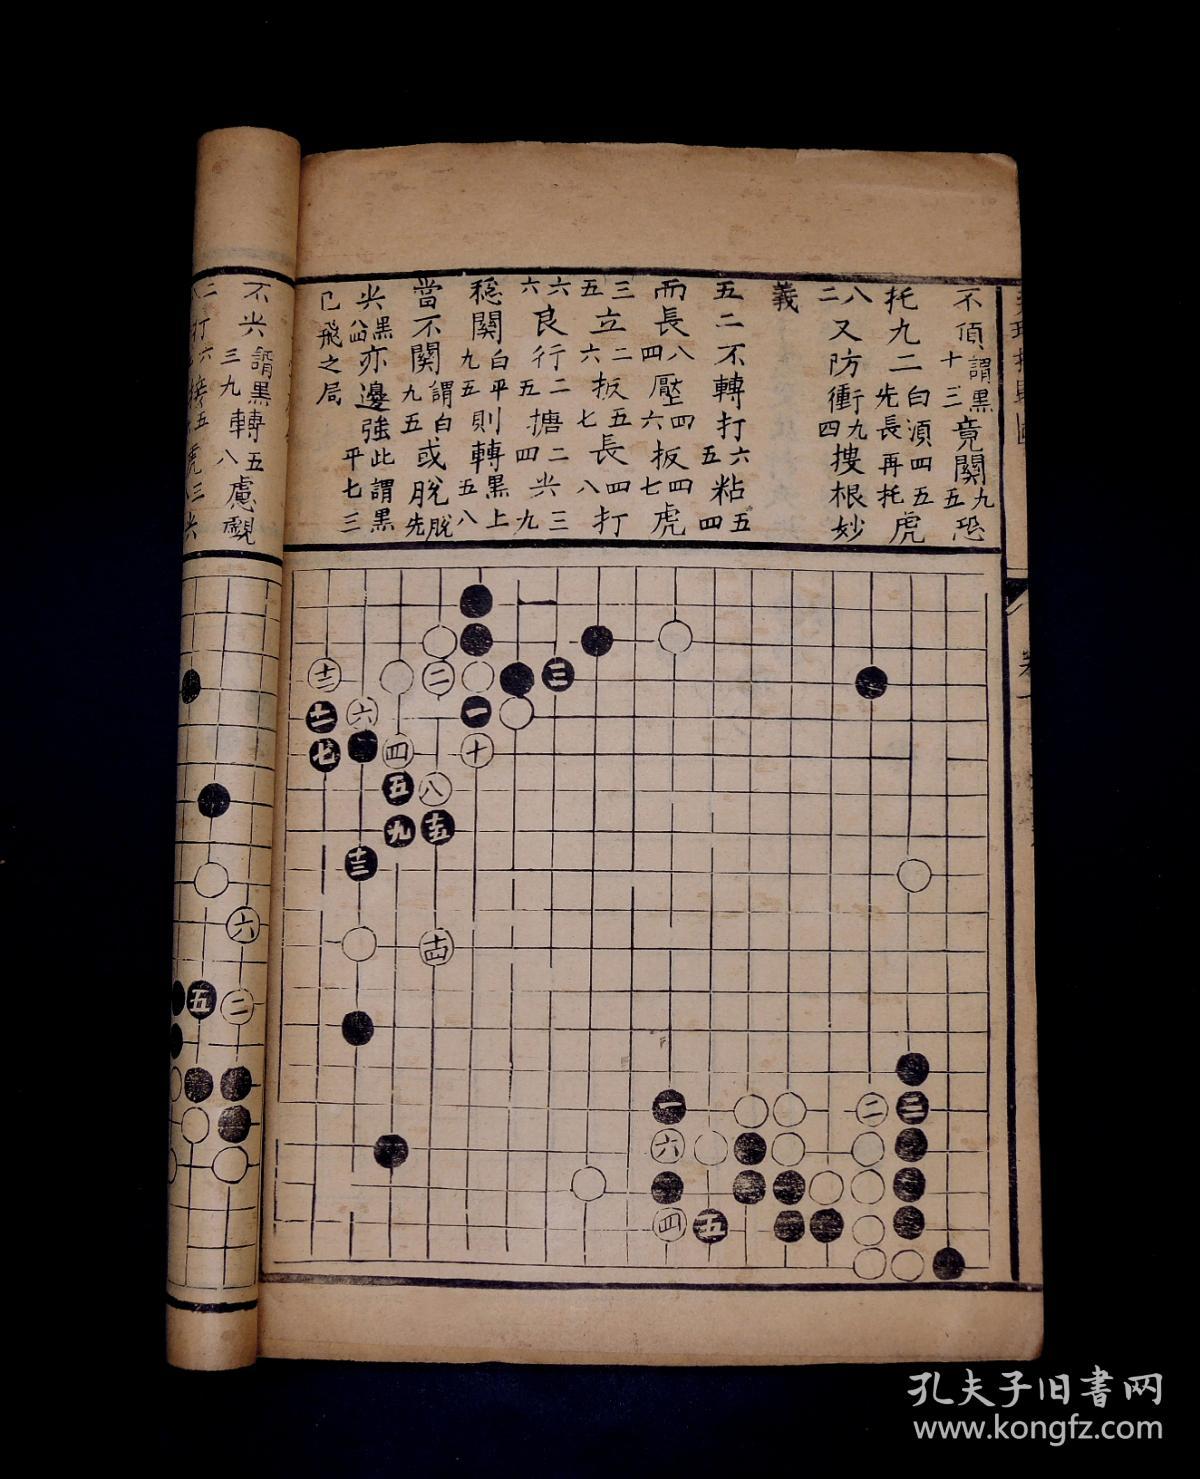 不頂謂黑十三竟關九五恐
托九二白須四五先長再托虎
八二又防衝九四搜根妙
義
五二不轉打六五粘五四
而長八四壓四六扳四七虎
三五立二六扳五七長四八打
六六良行二五搪二四尖三九
穩關白平九五則轉黑上五八
當不關謂白九五或脫脫先
尖黑八四亦邊強此謂黑平七三
已飛之局
不尖謂黑三九轉五八慮覷
卷一
一
二
三
四
五
六
七
八
九
十
十一
十二
十三
十四
十五
一
二
三
四
五
六
二
五
六
孔夫子旧書网
www.kongfz.com